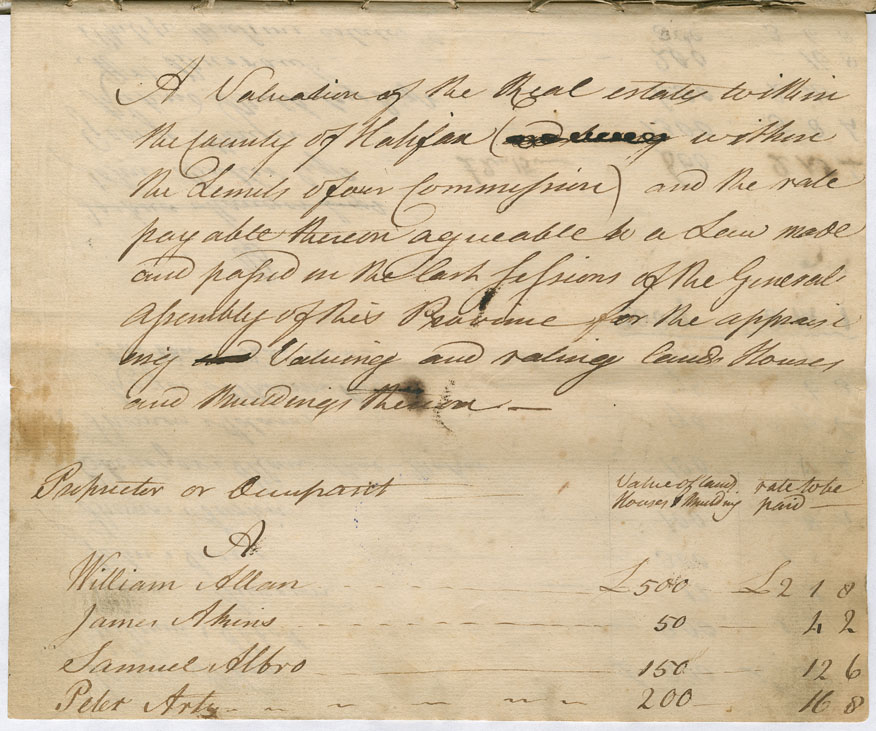 A Valuation of the Real estate within
the County of Halifax ( within
the Limits of our Commission) and the rate
payable thereon agreeable to a Law made
and passed in the last Sessions of the General
Assembly of this Province for the apprais
ing Valuing and rating lands Houses
and Buildings thereon —
Proprietor or Occupant
Value of land rate to be
Houses & Building paid —
A
William Allan £500 £2 1 8
James Akins 50 4 2
Samuel Albro 150 12 6
Peter Arty 200 16 8